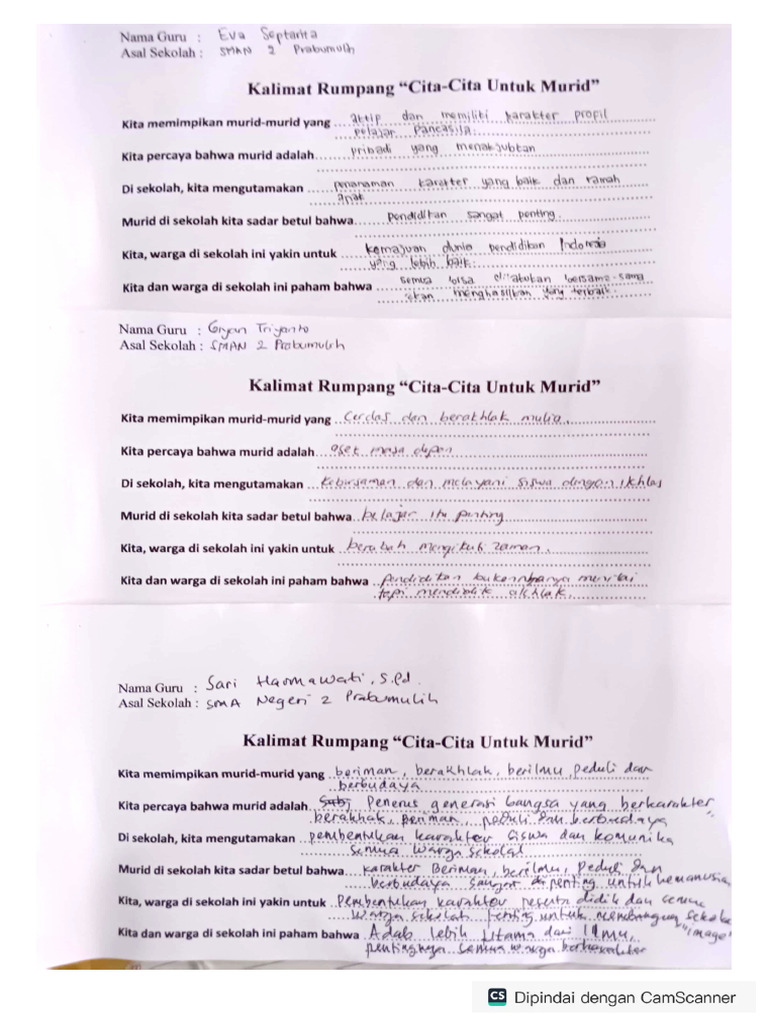 Nama Guru : Eva Septarita
Asal Sekolah : SMAN 2 Prabumulih
Kalimat Rumpang “Cita-Cita Untuk Murid”
Kita memimpikan murid-murid yang aktip dan memiliki karakter profil
pelajar Pancasila.
Kita percaya bahwa murid adalah pribadi yang menakjubkan
Di sekolah, kita mengutamakan penanaman karakter yang baik dan ramah
anak
Murid di sekolah kita sadar betul bahwa pendidikan sangat penting.
Kita, warga di sekolah ini yakin untuk kemajuan dunia pendidikan Indonesia
yang lebih baik.
Kita dan warga di sekolah ini paham bahwa semua bisa dilakukan bersama-sama
akan menghasilkan yang terbaik.
Nama Guru : Gryan Triyanto
Asal Sekolah : SMAN 2 Prabumulih
Kalimat Rumpang “Cita-Cita Untuk Murid”
Kita memimpikan murid-murid yang Cerdas dan berakhlak mulia.
Kita percaya bahwa murid adalah aset masa depan
Di sekolah, kita mengutamakan kebersamaan dan melayani siswa dengan ikhlas
Murid di sekolah kita sadar betul bahwa belajar itu penting
Kita, warga di sekolah ini yakin untuk berubah mengikuti zaman.
Kita dan warga di sekolah ini paham bahwa pendidikan bukan hanya menilai
tapi mendidik akhlak.
Nama Guru : Sari Harmawati, S.Pd.
Asal Sekolah : SMA Negeri 2 Prabumulih
Kalimat Rumpang “Cita-Cita Untuk Murid”
Kita memimpikan murid-murid yang beriman, berakhlak, berilmu, peduli dan
berbudaya
Kita percaya bahwa murid adalah Penerus generasi bangsa yang berkarakter,
berakhak, beriman, peduli dan berbudaya
Di sekolah, kita mengutamakan pembentukan karakter siswa dan komunika
semua warga sekolah
Murid di sekolah kita sadar betul bahwa karakter Beriman, berilmu, Peduli dan
berbudaya sangat penting untuk kemanusian
Kita, warga di sekolah ini yakin untuk Pembentukan karakter peserta didik dan semua
warga sekolah penting untuk membangun sekolah
"image"
Kita dan warga di sekolah ini paham bahwa Adab lebih Utama dari Ilmu,
pentingnya semua warga berkarakter
CS Dipindai dengan CamScanner